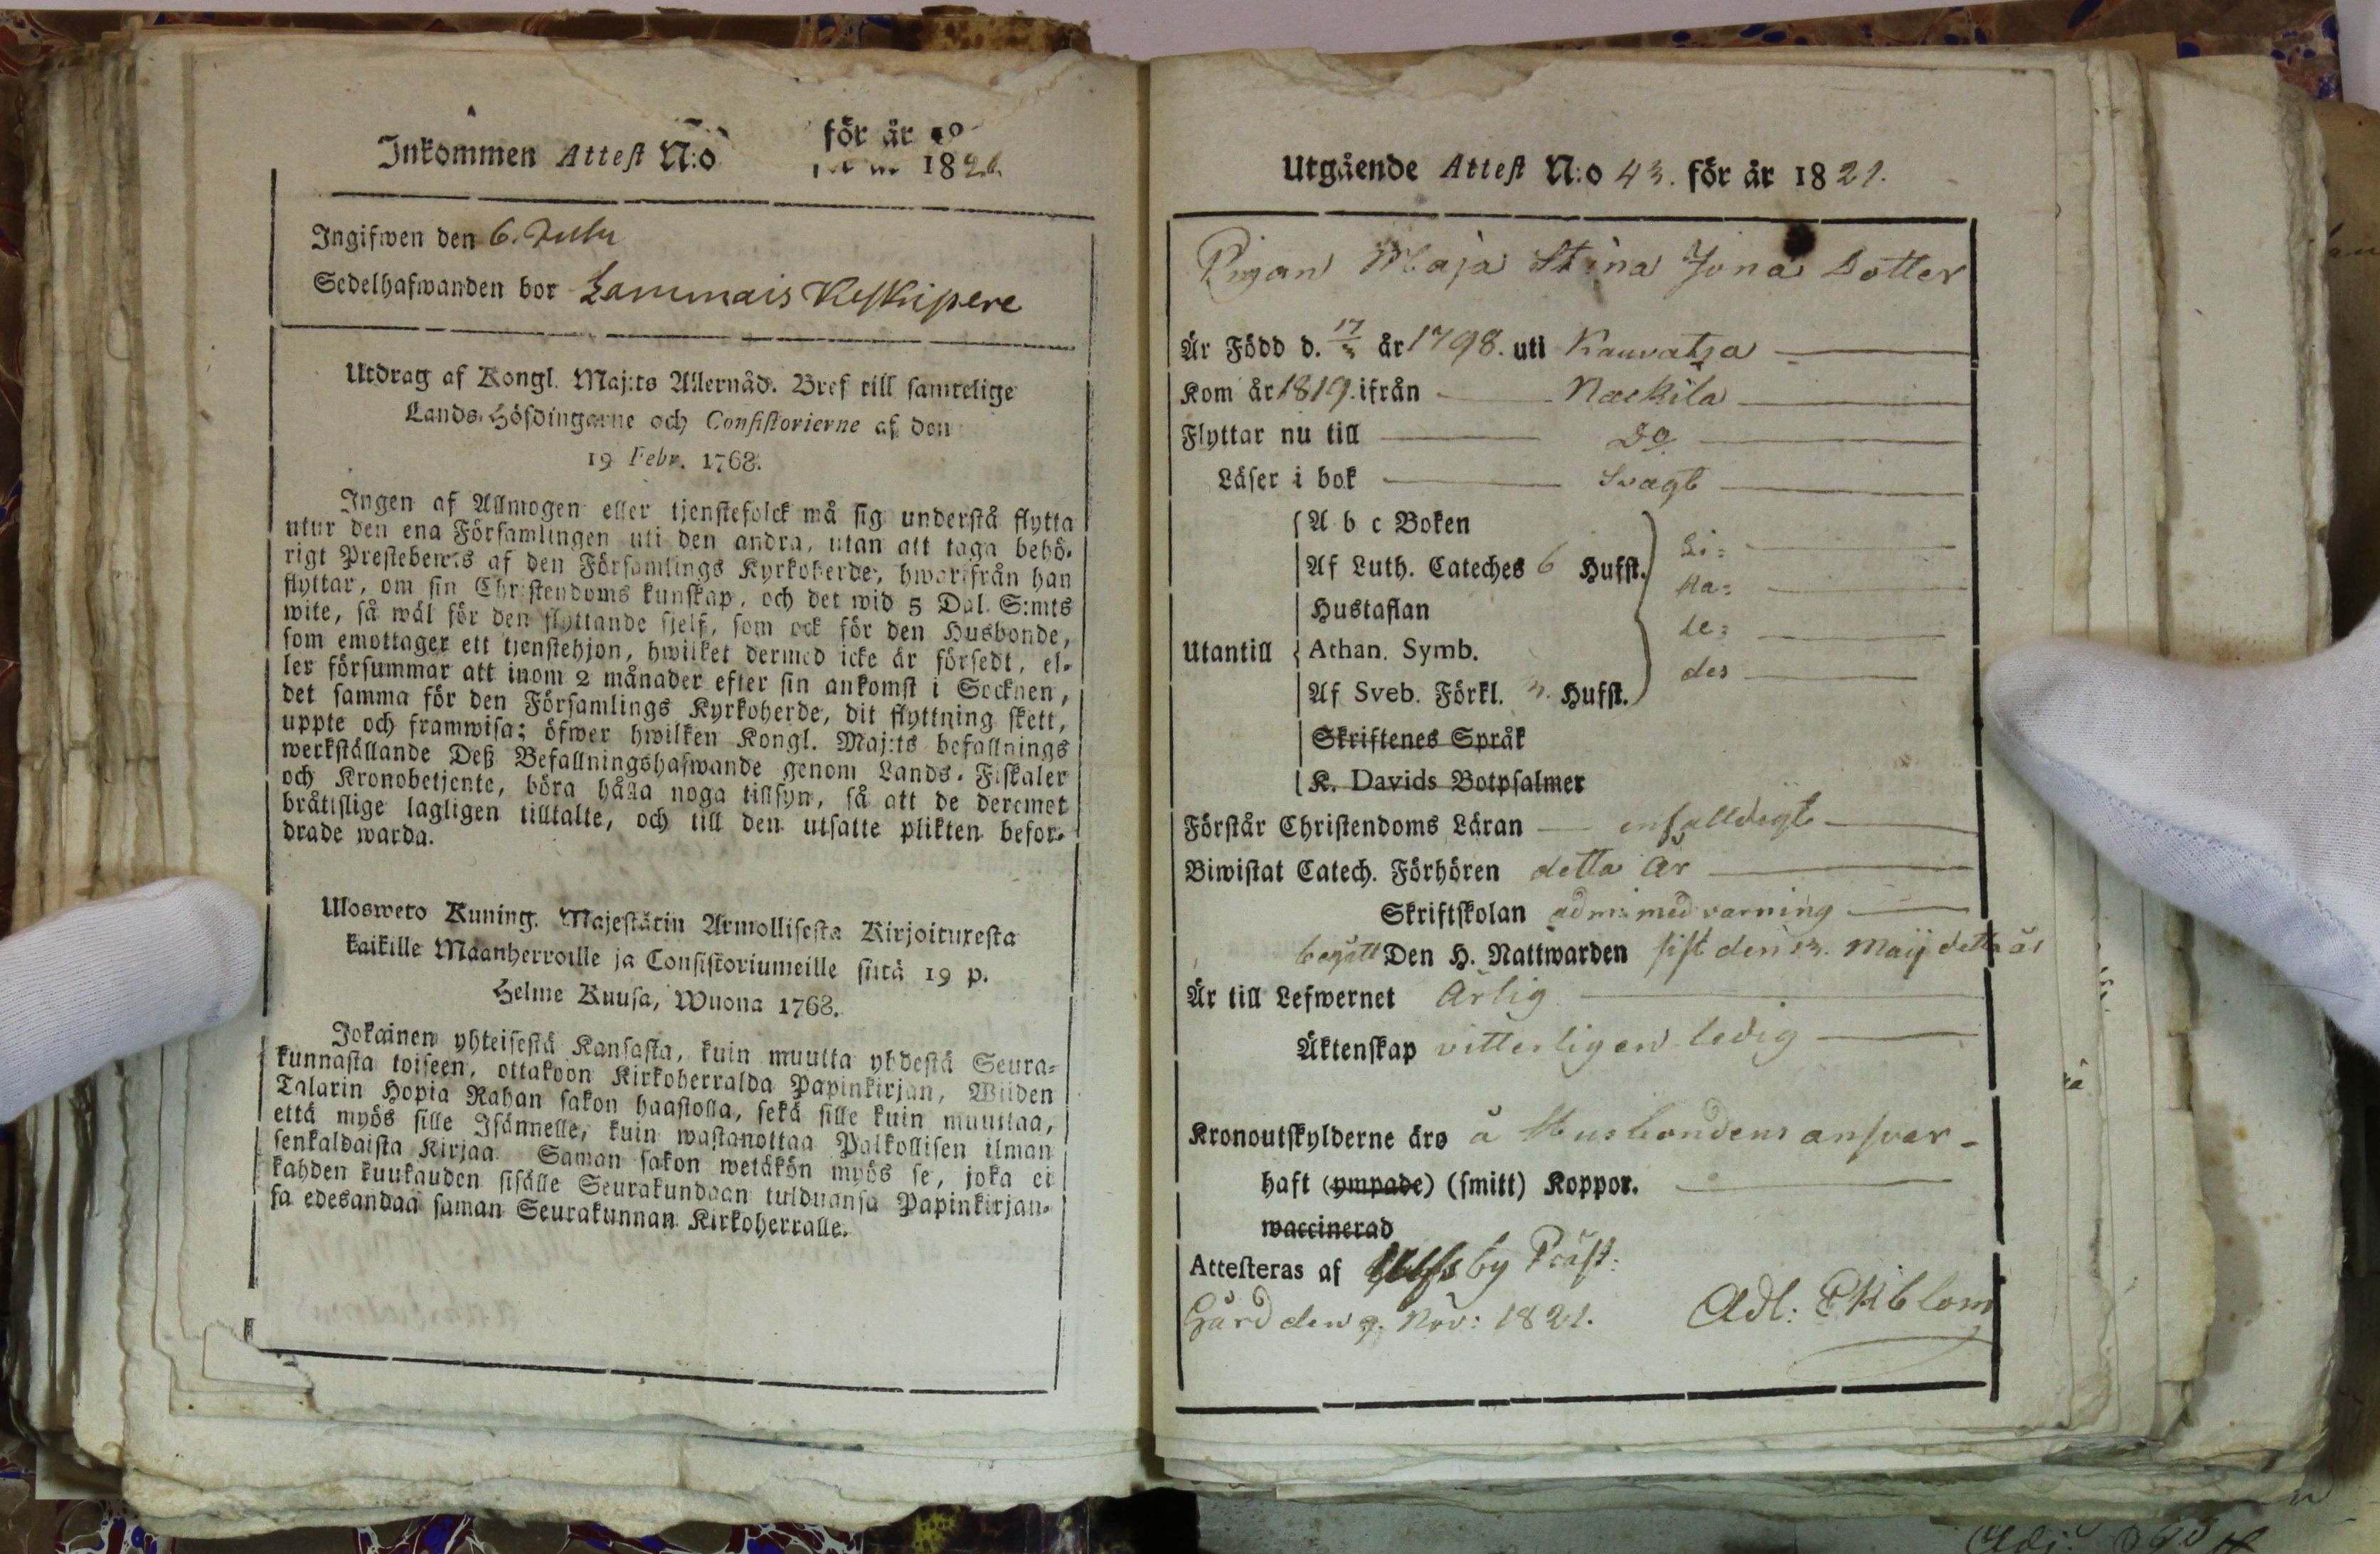 för år
Inkommen Attest N:o 182
Ingifwen den 6.
Sedelhafwanden bor Lammais Keskipere
Utdrag af Kongl. Maj:ts Allernåd. Bref till samtelige
Lands-Höfdingarne och Consistorierne af den
19 Febr. 1768.
Ingen af Allmogen eller tjenstefolck må sig understå flytta
utur den ena Församlingen uti den andra, utan att taga behö-
rigt Prestebewis af den Församlings Kyrkoherde, hwarifrån han
flyttar, om sin Christendoms kunskap, och det wid 5 Dal. S:mts
wite, så wäl för den flyttande sjelf, som ock för den Husbonde,
som emottager ett tjenstehjon, hwilket dermed icke är försedt, el-
ler försummar att inom 2 månader efter sin ankomst i Socknen,
det samma för den Församlings Kyrkoherde, dit flyttning skett,
uppte och framwisa; öfwer hwilken Kongl. Maj:ts befallnings
werkställande Deß Befallningshafwande genom Lands-Fiskaler
och Kronobetjente, böra hålla noga tillsyn, så att de deremot
bråttslige lagligen tilltalte, och till den utsatte plikten befor-
drade warda.
Ulosweto Kuning. Majestätin Armollisesta Kirjoituxesta
kaikille Maanherroille ja Consistoriumeille siitä 19 p.
Helme Kuusa, Wuona 1768.
Jokainen yhteisestä Kansasta, kuin muutta yhdestä Seura-
kunnasta toiseen, ottakoon Kirkoherralda Papinkirjan, Wiiden
Talarin Hopia Rahan sakon haastolla, sekä sille kuin muuttaa,
että myös sille Isännelle, kuin wastanottaa Palkollisen ilman
senkaldaista Kirjaa. Saman sakon wetäkön myös se, joka ei
kahden kuukauden sisälle Seurakundaan tulduansa Papinkirjan-
sa edesandaa saman Seurakunnan Kirkoherralle.
Utgående Attest N:o 43. för år 1821.
Pigan Maja Stina Jona Dotter
Är Född d. 17 år 1798. uti Kauvatsa
Kom år 1819. ifrån Nackila
Flyttar nu till Do
Läser i bok Svagt
A b c Boken
Af Luth. Cateches 6 Hufst. Li=
Hustaflan ka=
Utantill Athan. Symb. de=
Af Sveb. Förkl. Hufst. des
Skriftenes Språk
K. Davids Botpsalmer
Förstår Christendoms Läran enfalldigt
Biwistat Catech. Förhören detta år
Skriftskolan adm: med varning
begått Den H. Nattwarden sist den 13. Maij detta år
Är till Lefwernet Ärlig
Äktenskap vitterligen ledig
Kronoutskylderne äro å Husbondens ansvar
haft (ympade) (smitt) Koppor.
waccinerad
Attesteras af Ulfsby Präst:
Gård den 9. Nov: 1821. Adl: Ekblom
Adj: